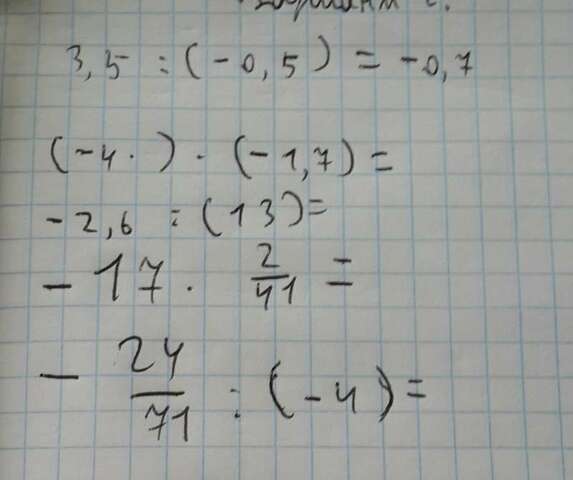 3,5 : (-0,5) = -0,7
(-4. ) · (-1,7) =
-2,6 : (13) =
-17 · 2/41 =
- 24/71 : (-4) =